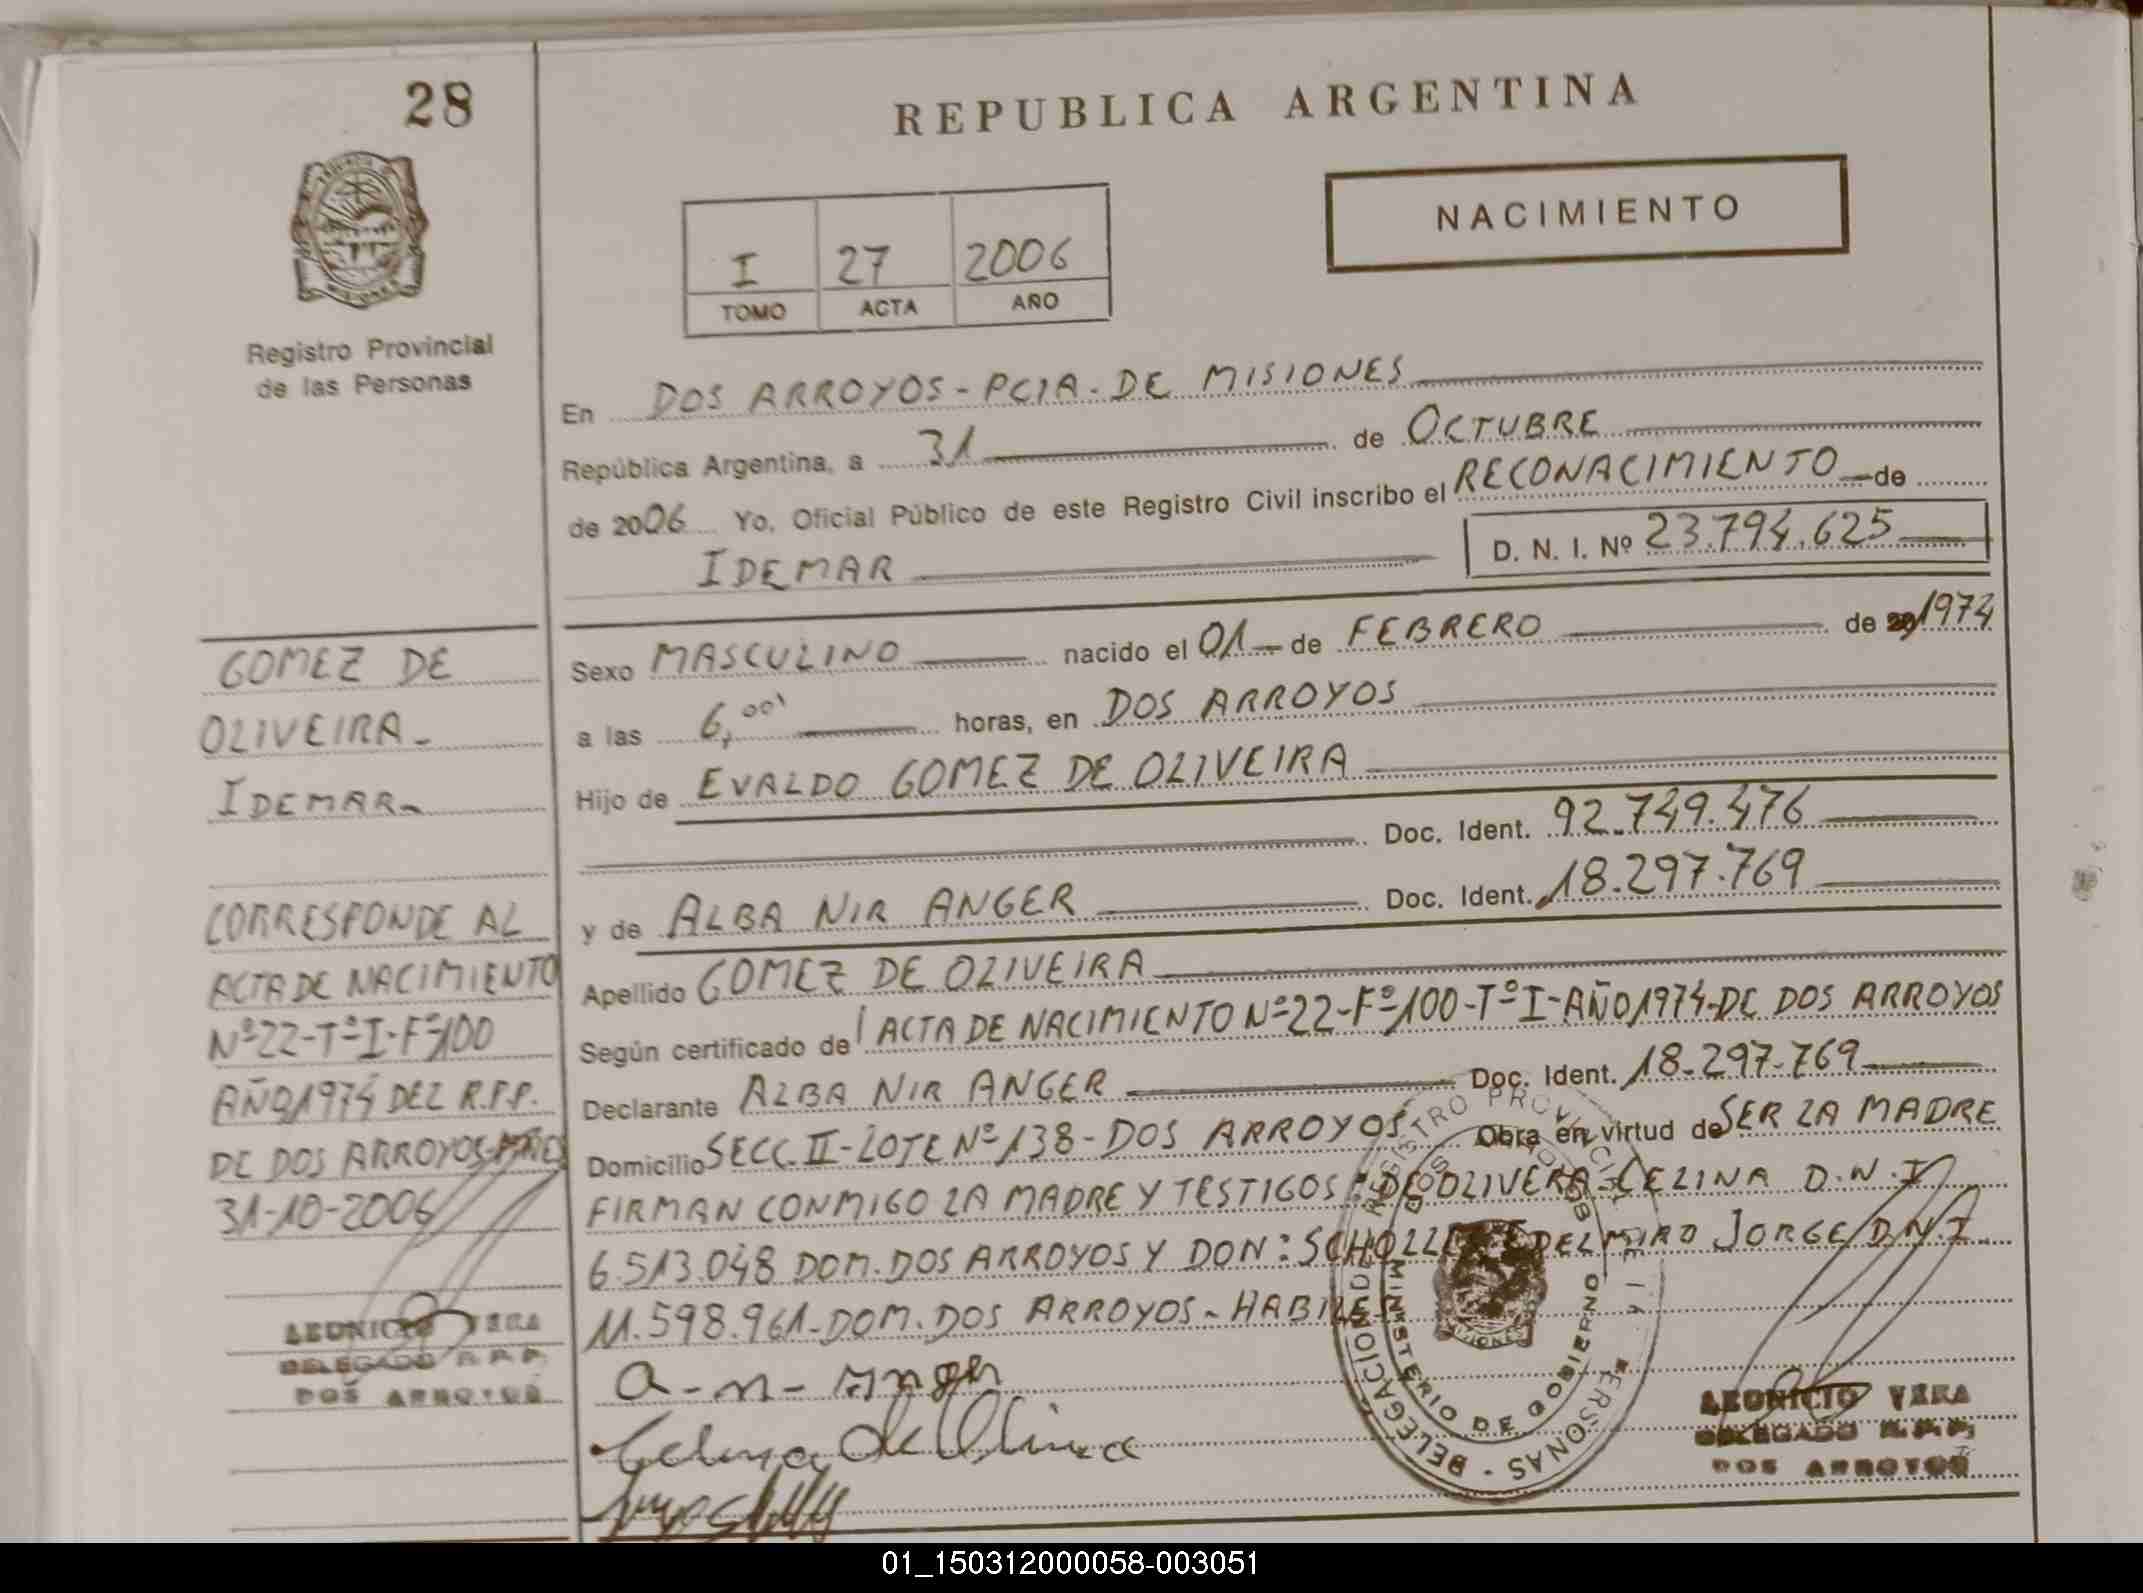 28
REPUBLICA ARGENTINA
NACIMIENTO
I 27 2006
TOMO ACTA AÑO
Registro Provincial
de las Personas
En DOS ARROYOS - PCIA. DE MISIONES
República Argentina, a 31 de OCTUBRE
de 2006 Yo, Oficial Público de este Registro Civil inscribo el RECONACIMIENTO de
IDEMAR D. N. I. Nº 23.794.625
Sexo MASCULINO nacido el 01 de FEBRERO de 1974
a las 6,00 horas, en DOS ARROYOS
Hijo de EVALDO GOMEZ DE OLIVEIRA
Doc. Ident. 92.749.476
y de ALBA NIR ANGER Doc. Ident. 18.297.769
Apellido GOMEZ DE OLIVEIRA
Según certificado de ACTA DE NACIMIENTO Nº22-Fº100-Tº I-AÑO1974-DE DOS ARROYOS
Declarante ALBA NIR ANGER Doc. Ident. 18.297.769
Domicilio SECC. II-LOTE Nº138-DOS ARROYOS Obra en virtud de SER LA MADRE
FIRMAN CONMIGO LA MADRE Y TESTIGOS: DE OLIVERA CELINA D.N.I
6.513.048 DOM. DOS ARROYOS Y DON: EDELMIRO JORGE D.N.I.
11.598.961-DOM. DOS ARROYOS-
GOMEZ DE
OLIVEIRA-
IDEMAR-
CORRESPONDE AL
ACTA DE NACIMIENTO
Nº22-Tº I-Fº100
AÑO1974 DEL R.P.P.
DE DOS ARROYOS
31-10-2006
LEONICIO VERA
DELEGADO R.P.P.
DOS ARROYOS
a-n-Anger
Celina de Olivera
REGISTRO PROVINCIAL DE LAS PERSONAS - DELEGACION
DOS ARROYOS
MINISTERIO DE GOBIERNO
MISIONES
LEONICIO VERA
DELEGADO R.P.P.
DOS ARROYOS
01_150312000058-003051